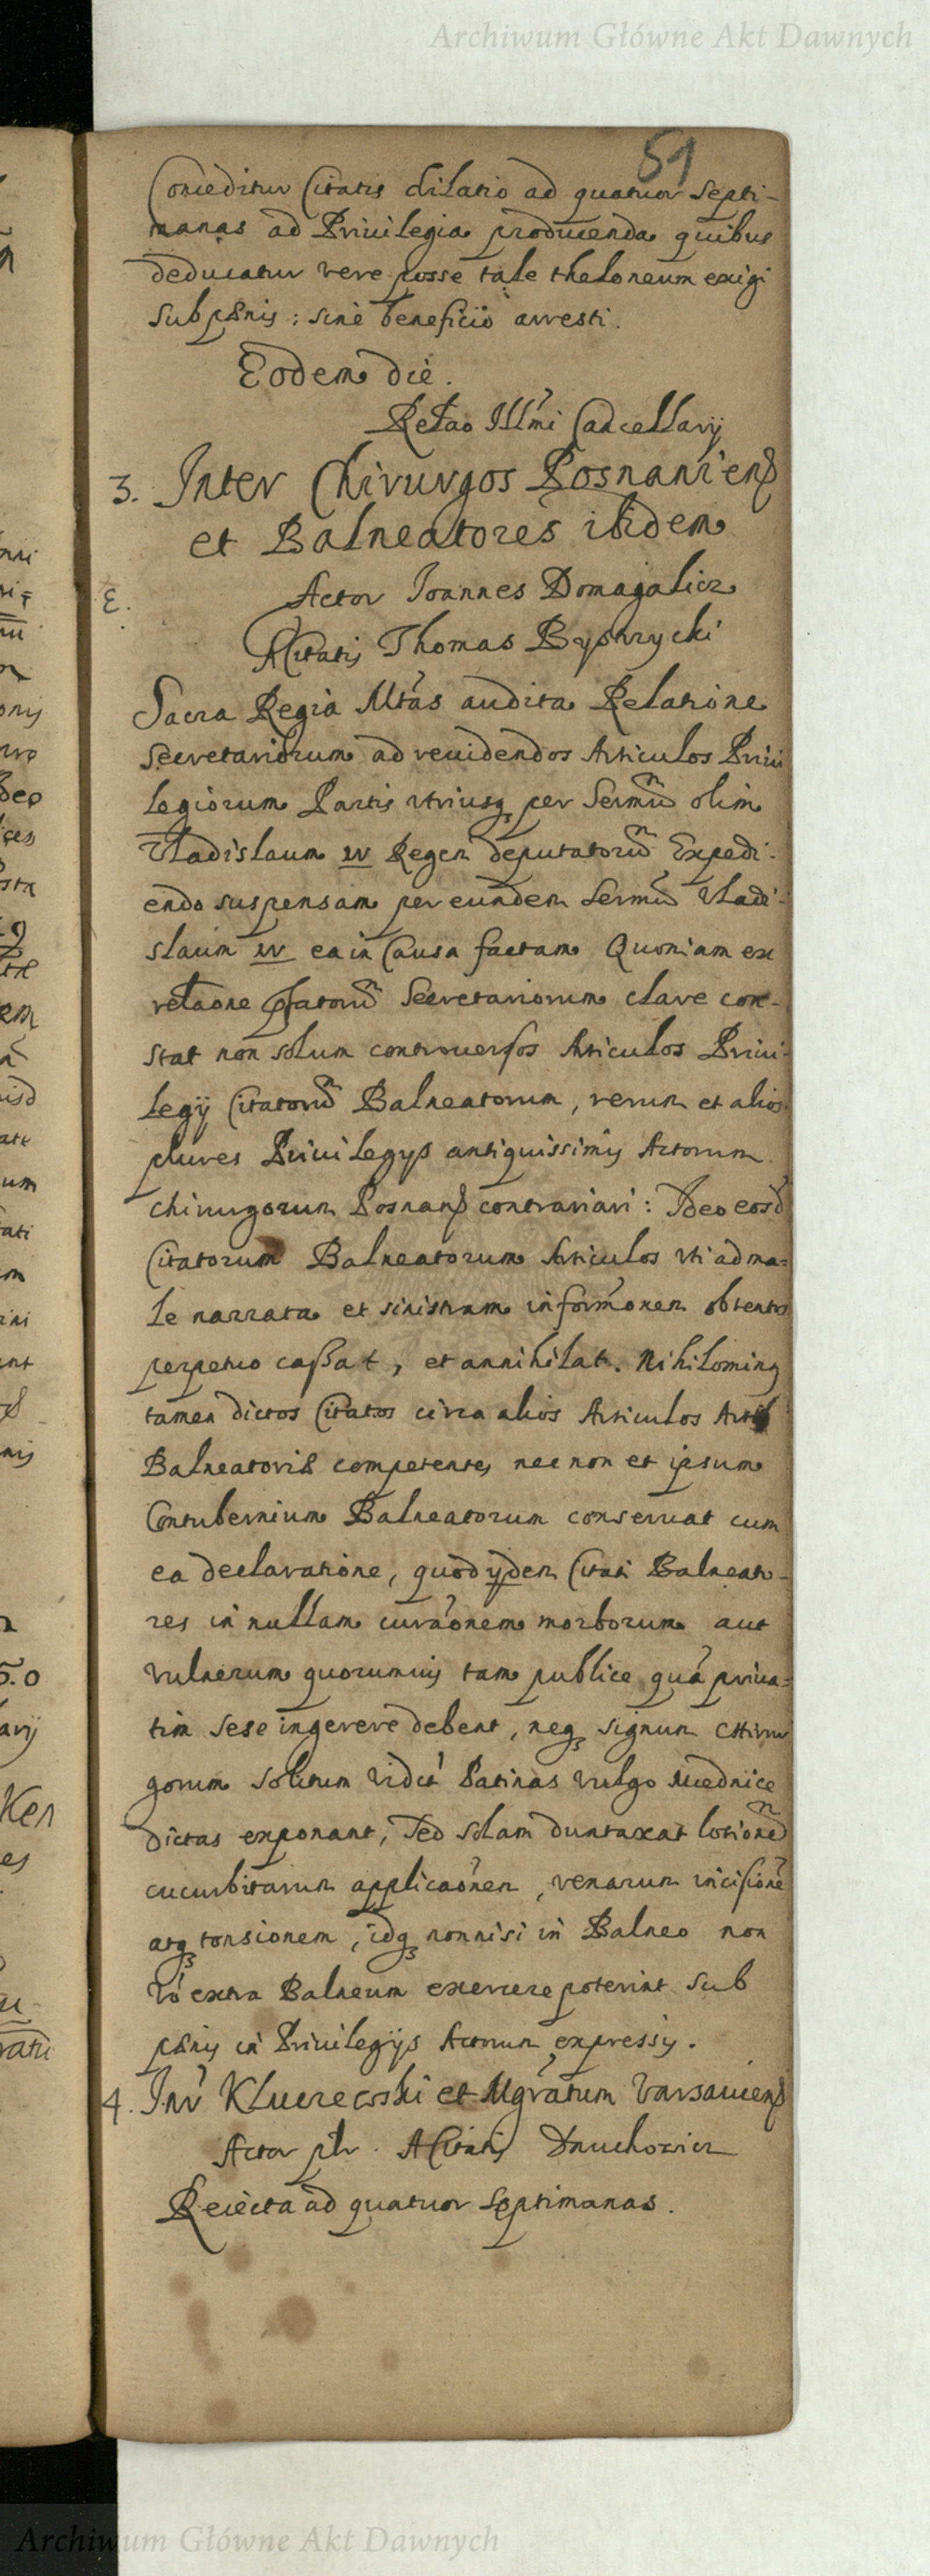 Archiwum Główne Akt Dawnych
51
Conceditur Citatis dilatio ad quatuor septi-
manas ad Privilegia producenda quibus
deducatur vere posse tale theloneum exigi
sub pœnis: sine beneficio arresti.
Eodem die.
Relao Illmi Cancellarij
3. Inter Chirurgos Posnaniens
et Balneatores ibidem
E. Actor Ioannes Domagalicz
ACitatis Thomas Bystrzycki
Sacra Regia Mtas audita Relatione
Secretariorum ad revidendos Articulos Privi
legiorum Partis utriusq per Sermu olim
Vladislaum IV Regem deputatoru Expedi-
endo suspensam per eundem Sermu Vladi-
slaum IV ea in Causa factam Quoniam ex
relaone pfatoru Secretariorum clare con-
stat non solum controversos Articulos Privi-
legij Citatoru Balneatorum, verum et alios
plures Privilegijs antiquissimis Actorum
Chirurgorum Posnans contrariari: Ideo eosd
Citatorum Balneatorum Articulos uti ad ma-
le narrata et sinistram informonem obtentos
perpetuo cassat, et annihilat. Nihilominq
tamen dictos Citatos circa alios Articulos
Balneatoris competentes nec non et ipsum
Contubernium Balneatorum conservat cum
ea declaratione, quod ijdem Citati Balneato-
res in nullam curaonem morborum aut
vulnerum quorumvis tam publice qua priva-
tim sese ingerere debent, neq signum Chirur
gorum solitum vidct Patinas vulgo Miednice
dictas exponant, sed solam duntaxat lotione
cucurbitarum applicaonem, venarum incisione
atq tonsionem, idq nonnisi in Balneo non
vo extra Balneum exercere poterint sub
pœnis in Privilegijs Actorum expressis.
4. Int Kluczewski et Mgratum Varsaviens
Actor ACitatis
Reiecta ad quatuor septimanas.
Archiwum Główne Akt Dawnych